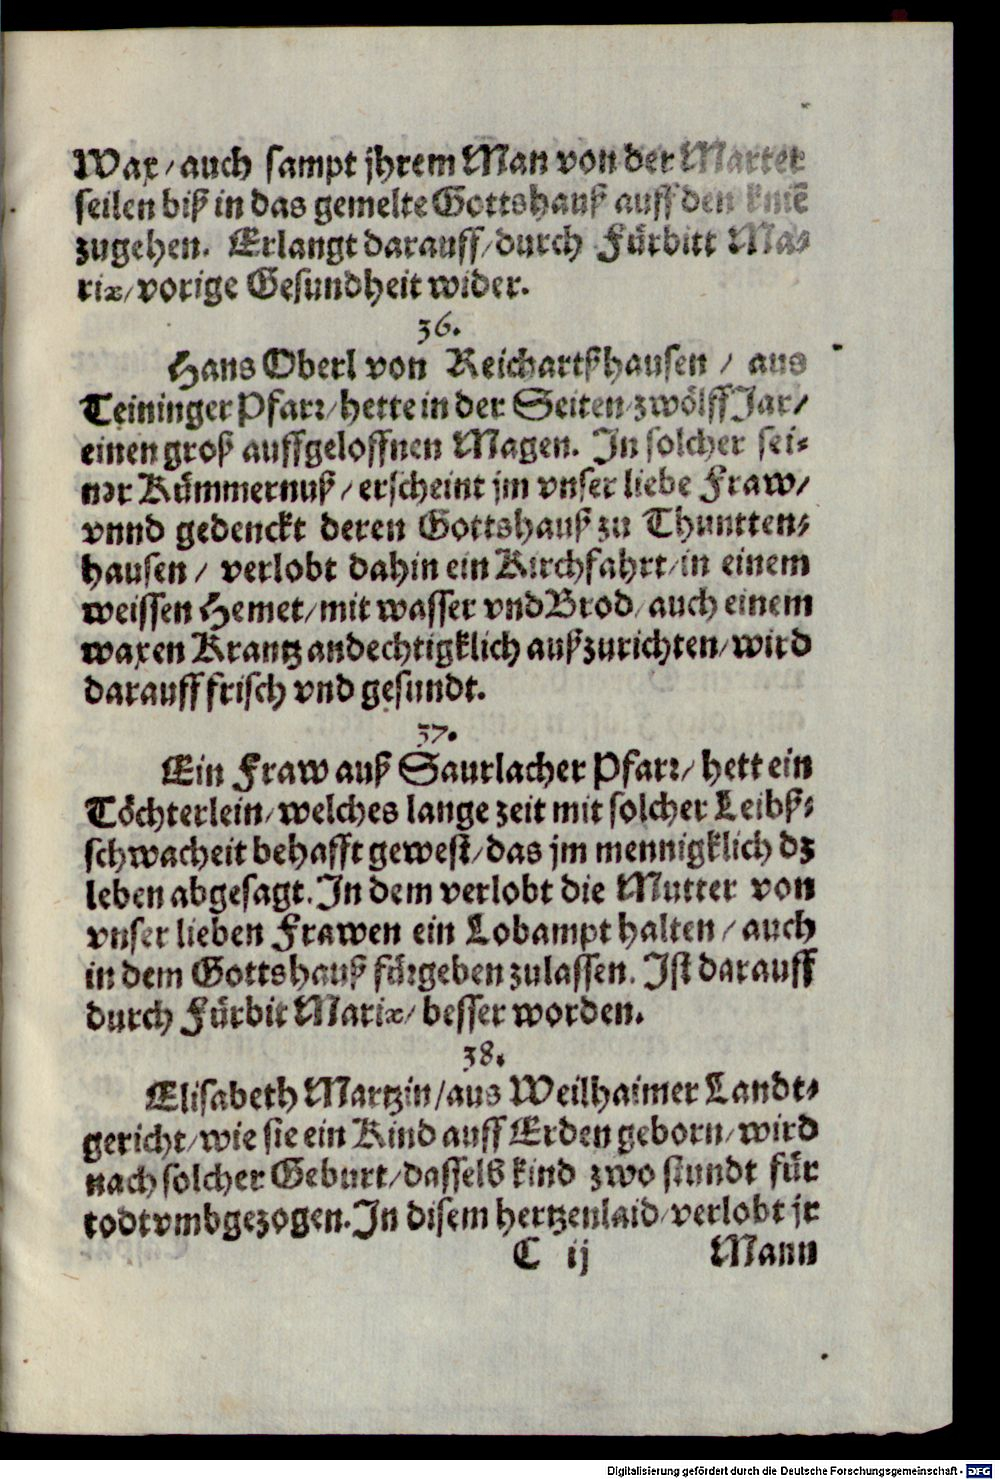 Wax/ auch sampt jhrem Man von der Marter
seilen biß in das gemelte Gottshauß auff den knië
zugehen. Erlangt darauff/ durch Fürbitt Ma-
riæ/ vorige Gesundheit wider.
36.
Hans Oberl von Reichartßhausen / aus
Teininger Pfarr/ hette in der Seiten/ zwölff Jar/
einen groß auffgeloffnen Magen. In solcher sei-
ner Kümmernuß / erscheint jm vnser liebe Fraw/
vnnd gedenckt deren Gottshauß zu Thuntten-
hausen / verlobt dahin ein Kirchfahrt/ in einem
weissen Hemet/ mit wasser vnd Brod/ auch einem
waxen Krantz andechtigklich außzurichten/ wird
darauff frisch vnd gesundt.
37.
Ein Fraw auß Saurlacher Pfarr/ hett ein
Töchterlein/ welches lange zeit mit solcher Leibß-
schwacheit behafft gewest/ das jm mennigklich dz
leben abgesagt. In dem verlobt die Mutter von
vnser lieben Frawen ein Lobampt halten / auch
in dem Gottshauß fürgeben zulassen. Ist darauff
durch Fürbit Mariæ/ besser worden.
38.
Elisabeth Martzin/ aus Weilhaimer Landt-
gericht/ wie sie ein Kind auff Erden geborn/ wird
nach solcher Geburt/ dasselb kind zwo stundt für
todt vmbgezogen. In disem hertzenlaid/ verlobt jr
C ij Mann
Digitalisierung gefördert durch die Deutsche Forschungsgemeinschaft - DFG